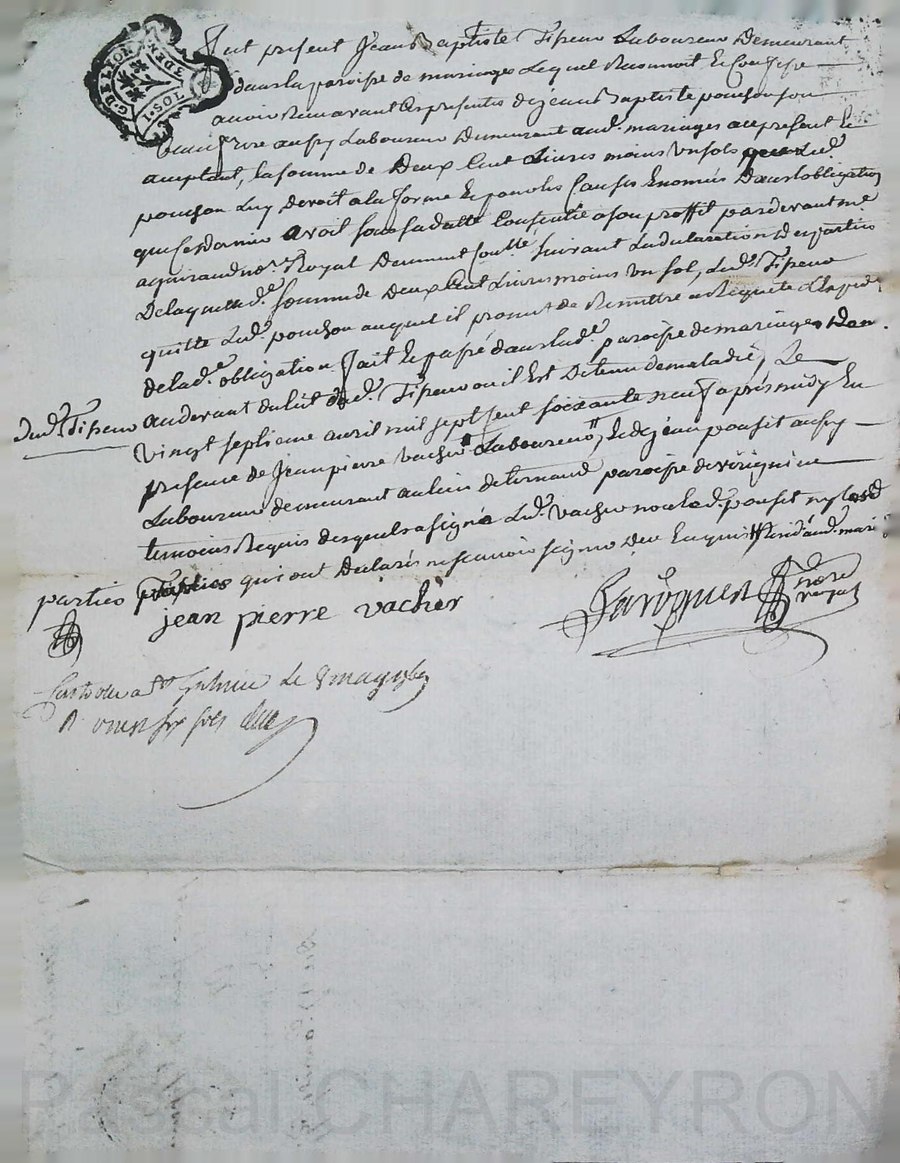 G. DE LYON
1. SOL.
DEN.
fut present Jean Baptiste Tiseur Laboureur Demeurant
dans la paroisse de mariages Lequel Reconnoit Et Confesse
avoir Reçu avant Ces presentes de jean Baptiste pouchon son
beau frere aussy Laboureur Demeurant aud. mariages au present Et
acceptant, la somme de Deux Cent Livres moins un sols que Led.
pouchon Luy devoit a la forme Et pour les Causes Enoncés Dans l'obligation
que Ce dernier avoit sous sa datte Consentie a son proffit pardevant me
notre. Royal Deument Controllé. suivant La declaration des parties
De laquelle de. somme de Deux Cent Livres moins un sol, Led. Tiseur
quitte Led. pouchon auquel il promet de Remettre a Requete
de lad.e obligation fait Et passé dans lad.e paroisse de mariages Dom.
dud. Tiseur
au devant du lit dud. Tiseur ou il Est Detenu de maladie, Le
vingt septieme avril mil sept cent soixante neuf après midy En
presence de Jean pierre vacher Laboureur, Et de jean pousit aussy
Laboureur demeurant au lieu de Ternand paroisse de
temoins Requis desquels a signé Led. vacher non Led. pousit ny Lesd
parties qui ont Declarés ne scavoir signer De ce Enquis
jean pierre vacher
notre
royal
Controllé a St. Le 8 may
R onze sols
Pascal CHAREYRON